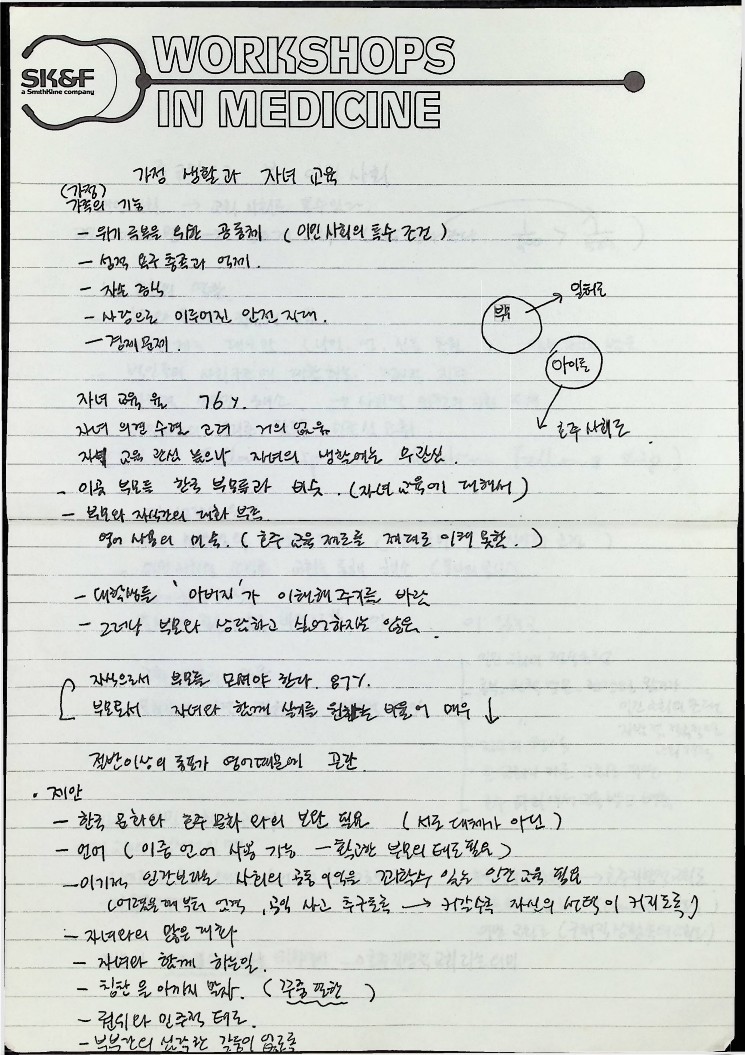 SK&F
a SmithKline company
WORKSHOPS
IN MEDICINE
가정 생활과 자녀 교육
(가정)
가족의 기능
- 위기 극복을 위한 공동체 (이민사회의 특수 조건)
- 성적 욕구 충족과 억제.
- 자손 번식
- 사랑으로 이루어진 안전 지대.
- 경제문제.
부부
일터로
아이들
호주 사회로
자녀 교육 율 76%.
자녀 의견 수렴 고려 거의 없음
자녀 교육 관심 높으나 자녀의 생활에는 무관심.
- 이곳 부모들 한국 부모들과 비슷. (자녀교육에 대해서)
- 부모와 자식간의 대화 부족
영어 사용의 미숙. (호주 교육 제도를 제대로 이해 못함.)
- 대학생들 '아버지'가 이해해주기를 바람
- 그러나 부모와 상담하고 싶어하지는 않음.
자식으로서 부모를 모셔야 한다. 87%.
부모로서 자녀와 함께 살기를 원하는 비율이 매우 ↓
절반이상의 동포가 영어때문에 곤란.
• 제안
- 한국 문화와 호주 문화 와의 보완 필요 (서로 대체가 아닌)
- 언어 (이중 언어 사용 가능 - 확고한 부모의 태도 필요)
- 이기적 인간보다는 사회의 공동 이익을 꾀할수 있는 인간 교육 필요
(어렸을때 부터 엄격, 공익 사고 추구토록 → 커갈수록 자신의 선택이 커지도록)
- 자녀와의 많은 대화
- 자녀와 함께 하는일.
- 칭찬을 아끼지 말자. (꾸중 또한)
- 권위와 민주적 태도.
- 부부간의 심각한 갈등이 없도록